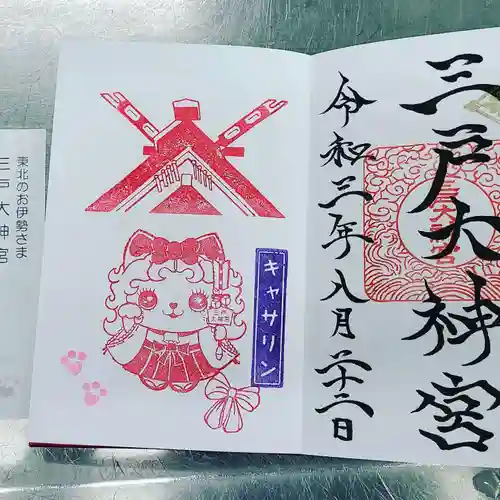 三戸大神宮
令和三年八月二十二日
キャサリン
三戸
大神宮
東北のお伊勢さま
三戸大神宮